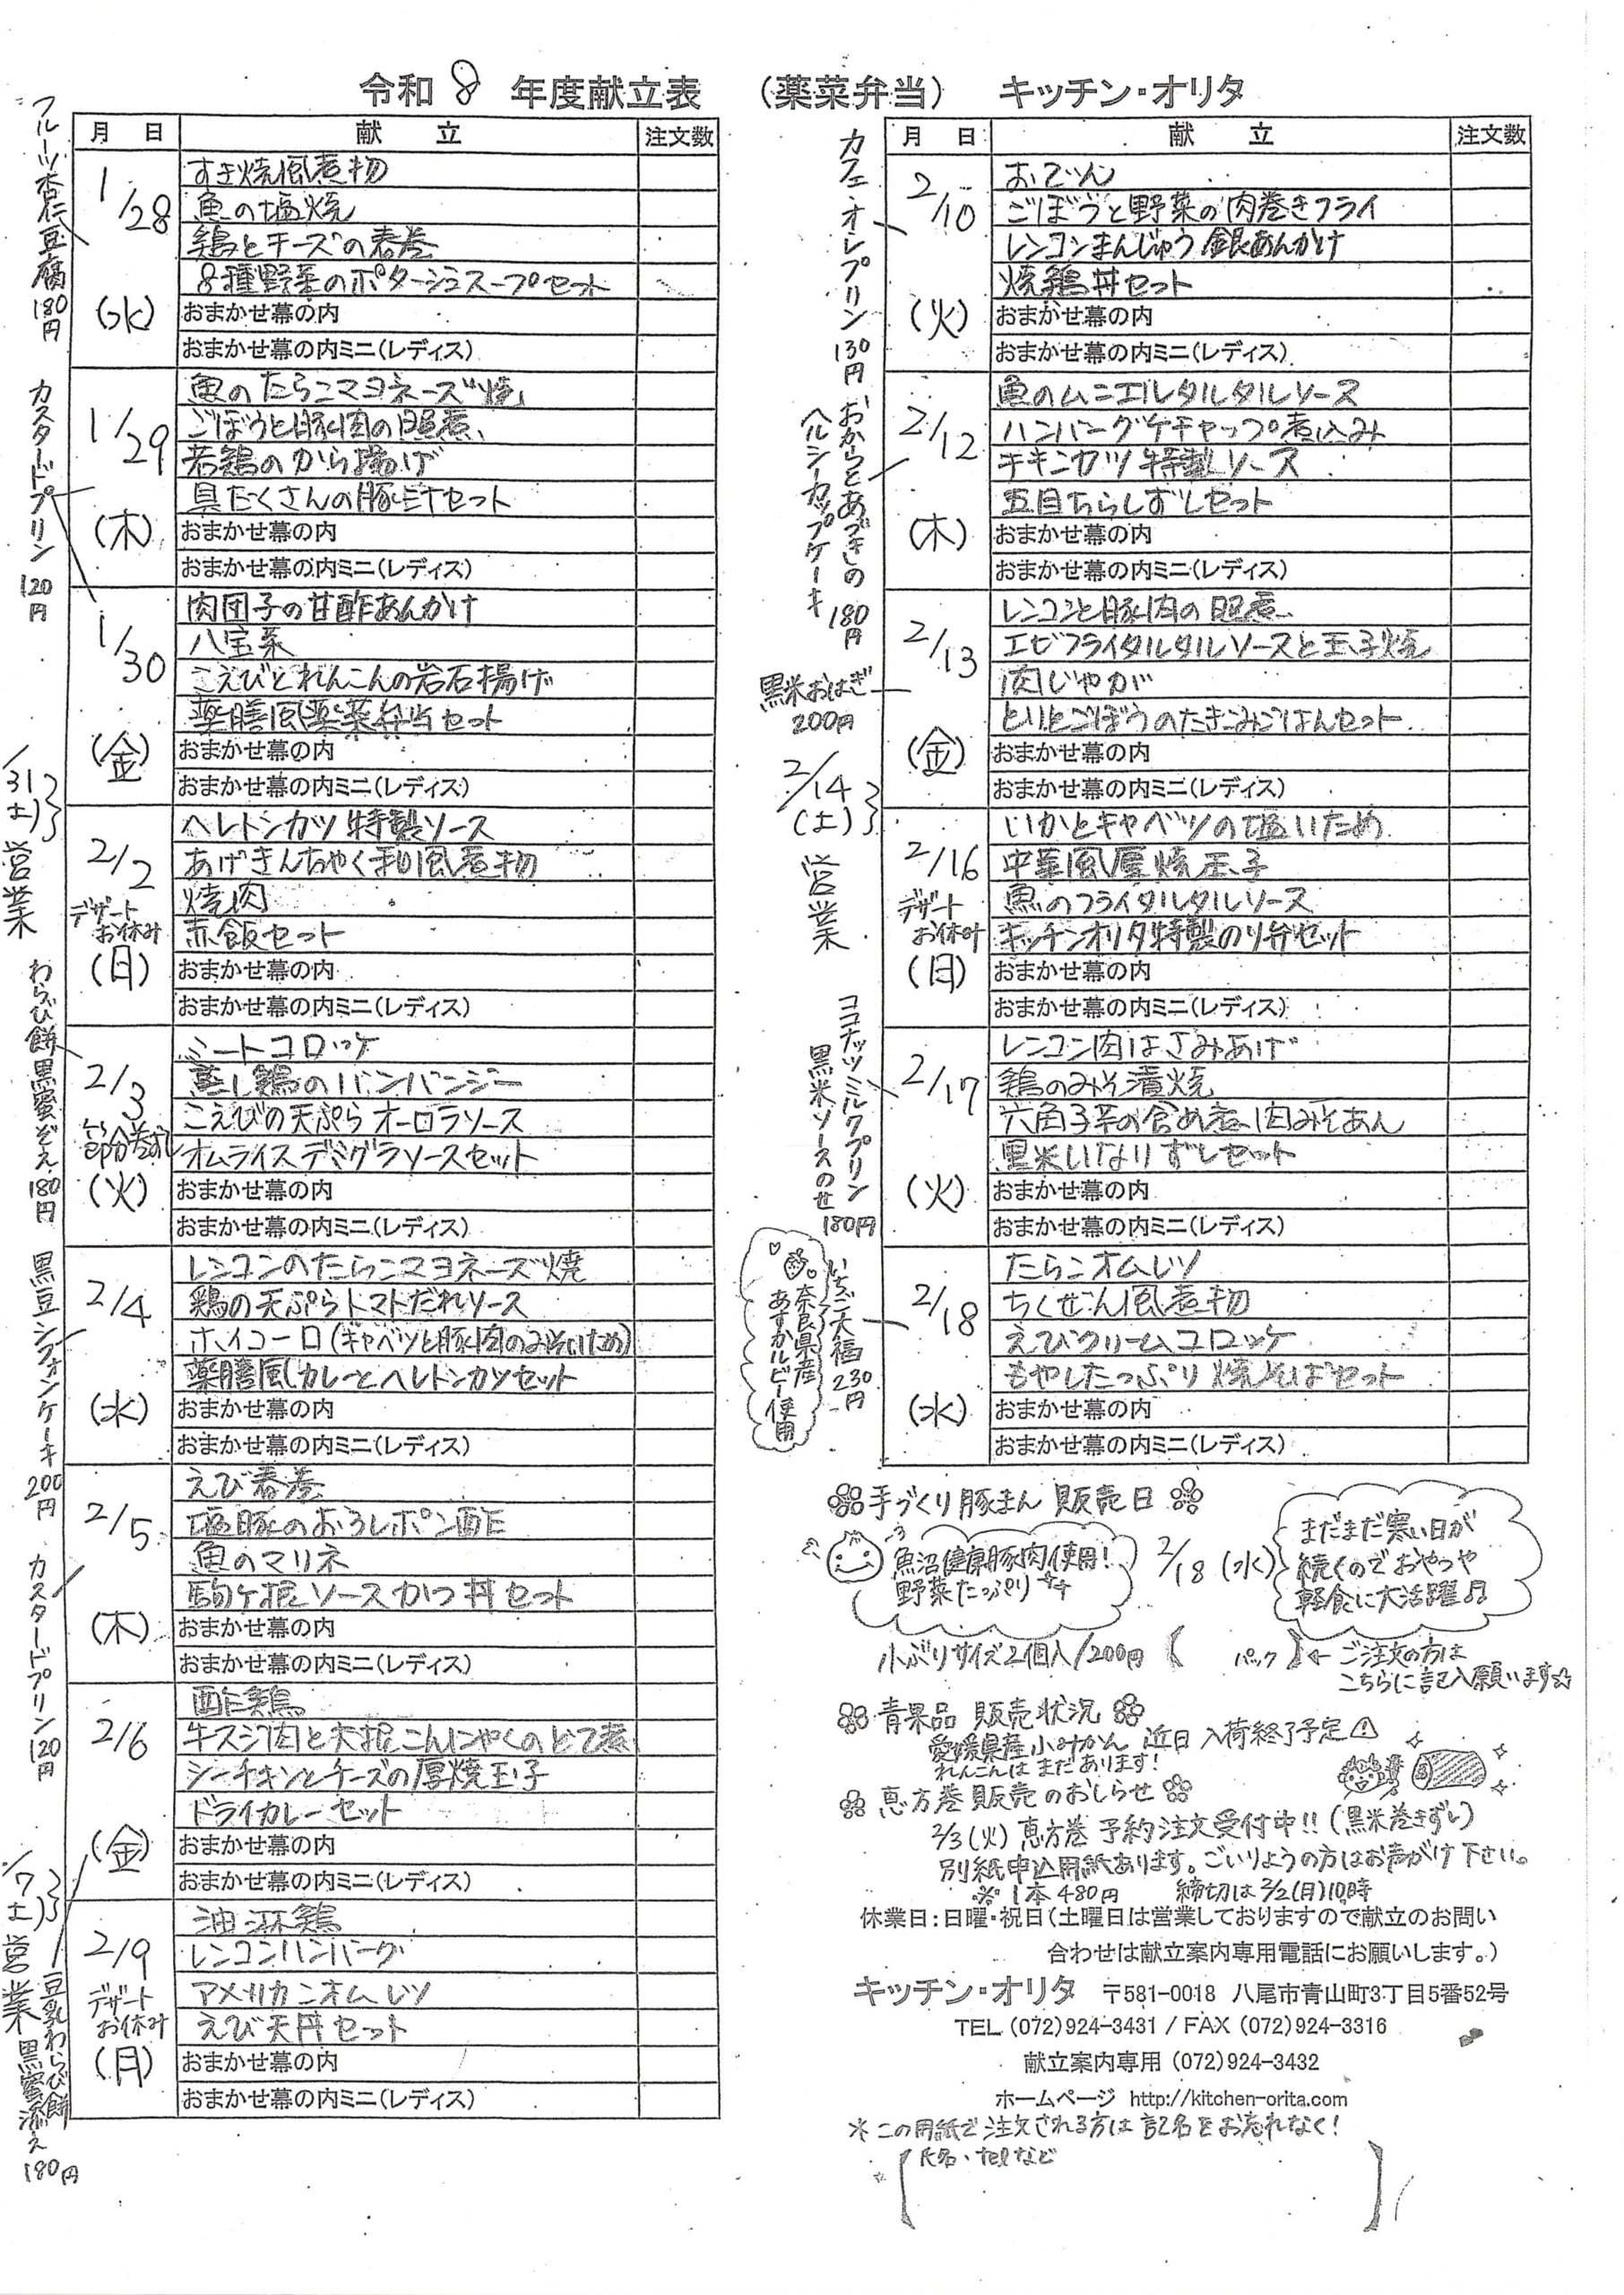 令和 8 年度献立表 (薬菜弁当) キッチン・オリタ
月 日 献 立 注文数
フルーツ杏仁豆腐 180円
1/28 (水)
すき焼風煮物
魚の塩焼
鶏とチーズの春巻
8種野菜のポタージュスープセット
おまかせ幕の内
おまかせ幕の内ミニ(レディス)
カスタードプリン 120円
1/29 (木)
魚のたらこマヨネーズ焼
ごぼうと豚肉の旨煮
若鶏のから揚げ
具たくさんの豚汁セット
おまかせ幕の内
おまかせ幕の内ミニ(レディス)
1/30 (金)
肉団子の甘酢あんかけ
八宝菜
こえびとれんこんの岩石揚げ
薬膳風薬菜弁当セット
おまかせ幕の内
おまかせ幕の内ミニ(レディス)
/31(土) 営業
2/2 デザートお休み (日)
ヘレトンカツ特製ソース
あげきんちゃく和風煮物
焼肉
赤飯セット
おまかせ幕の内
おまかせ幕の内ミニ(レディス)
わらび餅黒蜜ぞえ 180円
2/3 (火)
ミートコロッケ
蒸し鶏のバンバンジー
こえびの天ぷらオーロラソース
オムライスデミグラソースセット
おまかせ幕の内
おまかせ幕の内ミニ(レディス)
黒豆シフォンケーキ 200円
2/4 (水)
レンコンのたらこマヨネーズ焼
鶏の天ぷらトマトだれソース
ホイコーロ(キャベツと豚肉のみそいため)
薬膳風カレーとヘレトンカツセット
おまかせ幕の内
おまかせ幕の内ミニ(レディス)
カスタードプリン 120円
2/5 (木)
えび春巻
塩豚のおろしポン酢
魚のマリネ
駒ケ根ソースかつ丼セット
おまかせ幕の内
おまかせ幕の内ミニ(レディス)
2/6 (金)
酢鶏
牛スジ肉と大根こんにゃくのどて煮
シーチキンとチーズの厚焼玉子
ドライカレーセット
おまかせ幕の内
おまかせ幕の内ミニ(レディス)
豆乳わらび餅黒蜜添え 180円
/7(土) 営業
2/9 デザートお休み (月)
油淋鶏
レンコンハンバーグ
アメリカンオムレツ
えび天丼セット
おまかせ幕の内
おまかせ幕の内ミニ(レディス)
月 日 献 立 注文数
カフェ・オレプリン 130円
2/10 (火)
おでん
ごぼうと野菜の肉巻きフライ
レンコンまんじゅう銀あんかけ
焼鶏丼セット
おまかせ幕の内
おまかせ幕の内ミニ(レディス)
おからとあずきのヘルシーカップケーキ 180円
2/12 (木)
魚のムニエルタルタルソース
ハンバーグケチャップ煮込み
チキンカツ特製ソース
五目ちらしずしセット
おまかせ幕の内
おまかせ幕の内ミニ(レディス)
黒米おはぎ 200円
2/13 (金)
レンコンと豚肉の旨煮
エビフライタルタルソースと玉子焼
肉じゃが
とりとごぼうのたきこみごはんセット
おまかせ幕の内
おまかせ幕の内ミニ(レディス)
2/14(土) 営業
2/16 デザートお休み (月)
いかとキャベツの塩いため
中華風厚焼玉子
魚のフライタルタルソース
キッチンオリタ特製のり弁セット
おまかせ幕の内
おまかせ幕の内ミニ(レディス)
ココナッツミルクプリン黒米ソースのせ 180円
2/17 (火)
レンコン肉はさみあげ
鶏のみそ漬焼
六角子芋の含め煮肉みそあん
黒米いなりずしセット
おまかせ幕の内
おまかせ幕の内ミニ(レディス)
いちご大福 230円
奈良県産あすかルビー使用
2/18 (水)
たらこオムレツ
ちくぜん風煮物
えびクリームコロッケ
もやしたっぷり焼そばセット
おまかせ幕の内
おまかせ幕の内ミニ(レディス)
手づくり豚まん 販売日
魚沼健康豚肉使用!
野菜たっぷり
2/18 (水)
まだまだ寒い日が
続くのでおやつや
軽食に大活躍♫
小ぶりサイズ2個入/200円 【 パック】← ご注文の方は
こちらに記入願います☆
青果品 販売状況
愛媛県産小みかん 近日入荷終了予定⚠
れんこんはまだあります!
恵方巻販売のおしらせ
2/3(火) 恵方巻 予約注文受付中!!(黒米巻きずし)
別紙申込用紙あります。ごいりようの方はお声がけ下さい。
※1本480円 締切は2/2(月)10時
休業日:日曜・祝日(土曜日は営業しておりますので献立のお問い
合わせは献立案内専用電話にお願いします。)
キッチン・オリタ 〒581-0018 八尾市青山町3丁目5番52号
TEL (072)924-3431 / FAX (072)924-3316
献立案内専用 (072)924-3432
ホームページ http://kitchen-orita.com
*この用紙で注文される方は記名をお忘れなく!
[氏名・telなど ]